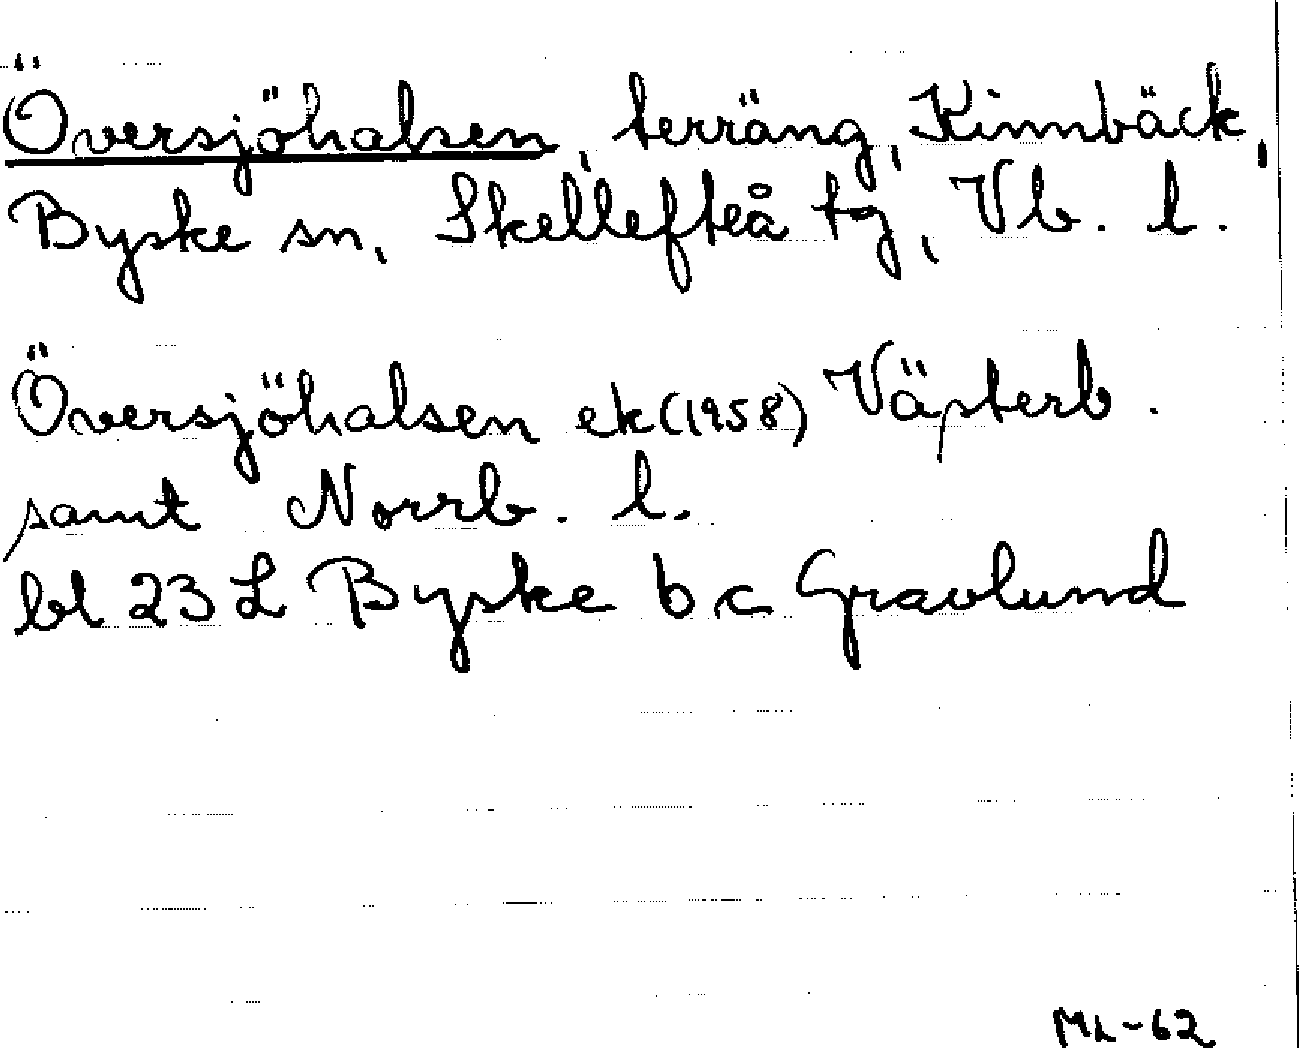 Översjöhalsen, terräng, Kinnbäck,
Byske sn, Skellefteå tg, Vb. l.
Översjöhalsen ek(1958) Västerb.
samt Norrb. l.
bl 23 L Byske b c Gravlund
ML-62